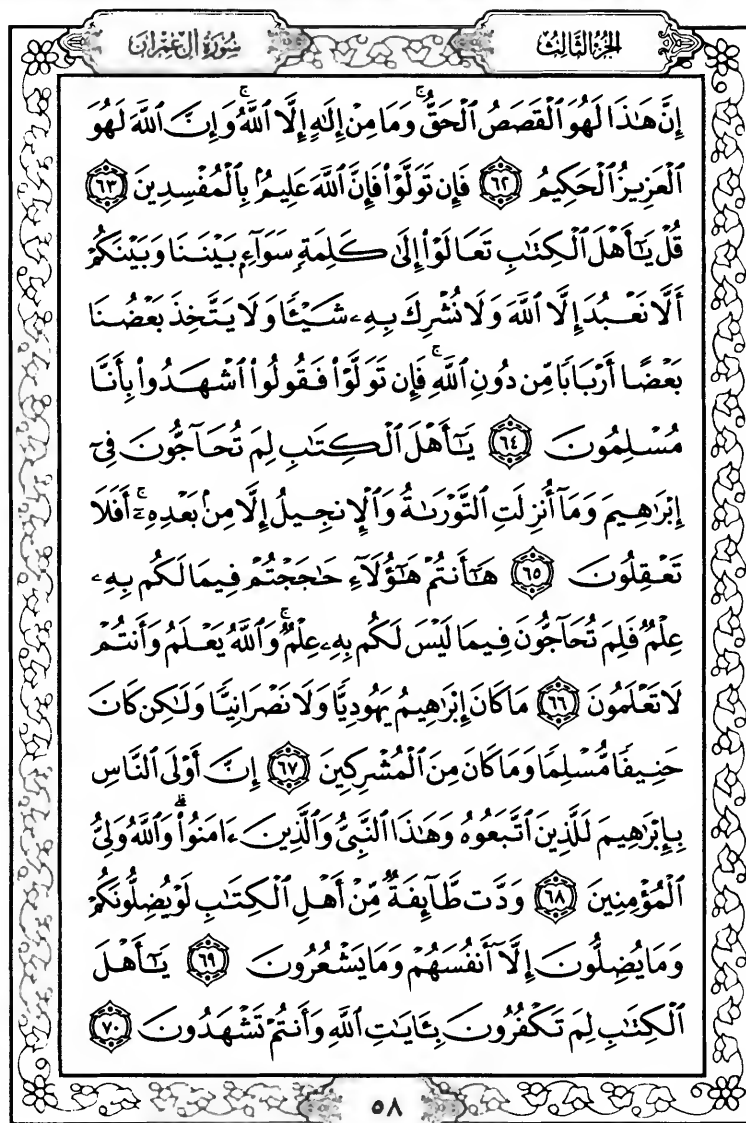 سُورَةُ آلِ عِمْرَان
الجُزْءُ الثَّالِثُ
إِنَّ هَٰذَا لَهُوَ ٱلْقَصَصُ ٱلْحَقُّ ۚ وَمَا مِنْ إِلَٰهٍ إِلَّا ٱللَّهُ ۚ وَإِنَّ ٱللَّهَ لَهُوَ
ٱلْعَزِيزُ ٱلْحَكِيمُ ٦٢ فَإِن تَوَلَّوْا۟ فَإِنَّ ٱللَّهَ عَلِيمٌۢ بِٱلْمُفْسِدِينَ ٦٣
قُلْ يَٰٓأَهْلَ ٱلْكِتَٰبِ تَعَالَوْا۟ إِلَىٰ كَلِمَةٍ سَوَآءٍۭ بَيْنَنَا وَبَيْنَكُمْ
أَلَّا نَعْبُدَ إِلَّا ٱللَّهَ وَلَا نُشْرِكَ بِهِۦ شَيْـًٔا وَلَا يَتَّخِذَ بَعْضُنَا
بَعْضًا أَرْبَابًا مِّن دُونِ ٱللَّهِ ۚ فَإِن تَوَلَّوْا۟ فَقُولُوا۟ ٱشْهَدُوا۟ بِأَنَّا
مُسْلِمُونَ ٦٤ يَٰٓأَهْلَ ٱلْكِتَٰبِ لِمَ تُحَآجُّونَ فِىٓ
إِبْرَٰهِيمَ وَمَآ أُنزِلَتِ ٱلتَّوْرَىٰةُ وَٱلْإِنجِيلُ إِلَّا مِنۢ بَعْدِهِۦٓ ۚ أَفَلَا
تَعْقِلُونَ ٦٥ هَٰٓأَنتُمْ هَٰٓؤُلَآءِ حَٰجَجْتُمْ فِيمَا لَكُم بِهِۦ
عِلْمٌ فَلِمَ تُحَآجُّونَ فِيمَا لَيْسَ لَكُم بِهِۦ عِلْمٌ ۚ وَٱللَّهُ يَعْلَمُ وَأَنتُمْ
لَا تَعْلَمُونَ ٦٦ مَا كَانَ إِبْرَٰهِيمُ يَهُودِيًّا وَلَا نَصْرَانِيًّا وَلَٰكِن كَانَ
حَنِيفًا مُّسْلِمًا وَمَا كَانَ مِنَ ٱلْمُشْرِكِينَ ٦٧ إِنَّ أَوْلَى ٱلنَّاسِ
بِإِبْرَٰهِيمَ لَلَّذِينَ ٱتَّبَعُوهُ وَهَٰذَا ٱلنَّبِىُّ وَٱلَّذِينَ ءَامَنُوا۟ ۗ وَٱللَّهُ وَلِىُّ
ٱلْمُؤْمِنِينَ ٦٨ وَدَّت طَّآئِفَةٌ مِّنْ أَهْلِ ٱلْكِتَٰبِ لَوْ يُضِلُّونَكُمْ
وَمَا يُضِلُّونَ إِلَّآ أَنفُسَهُمْ وَمَا يَشْعُرُونَ ٦٩ يَٰٓأَهْلَ
ٱلْكِتَٰبِ لِمَ تَكْفُرُونَ بِـَٔايَٰتِ ٱللَّهِ وَأَنتُمْ تَشْهَدُونَ ٧٠
٥٨